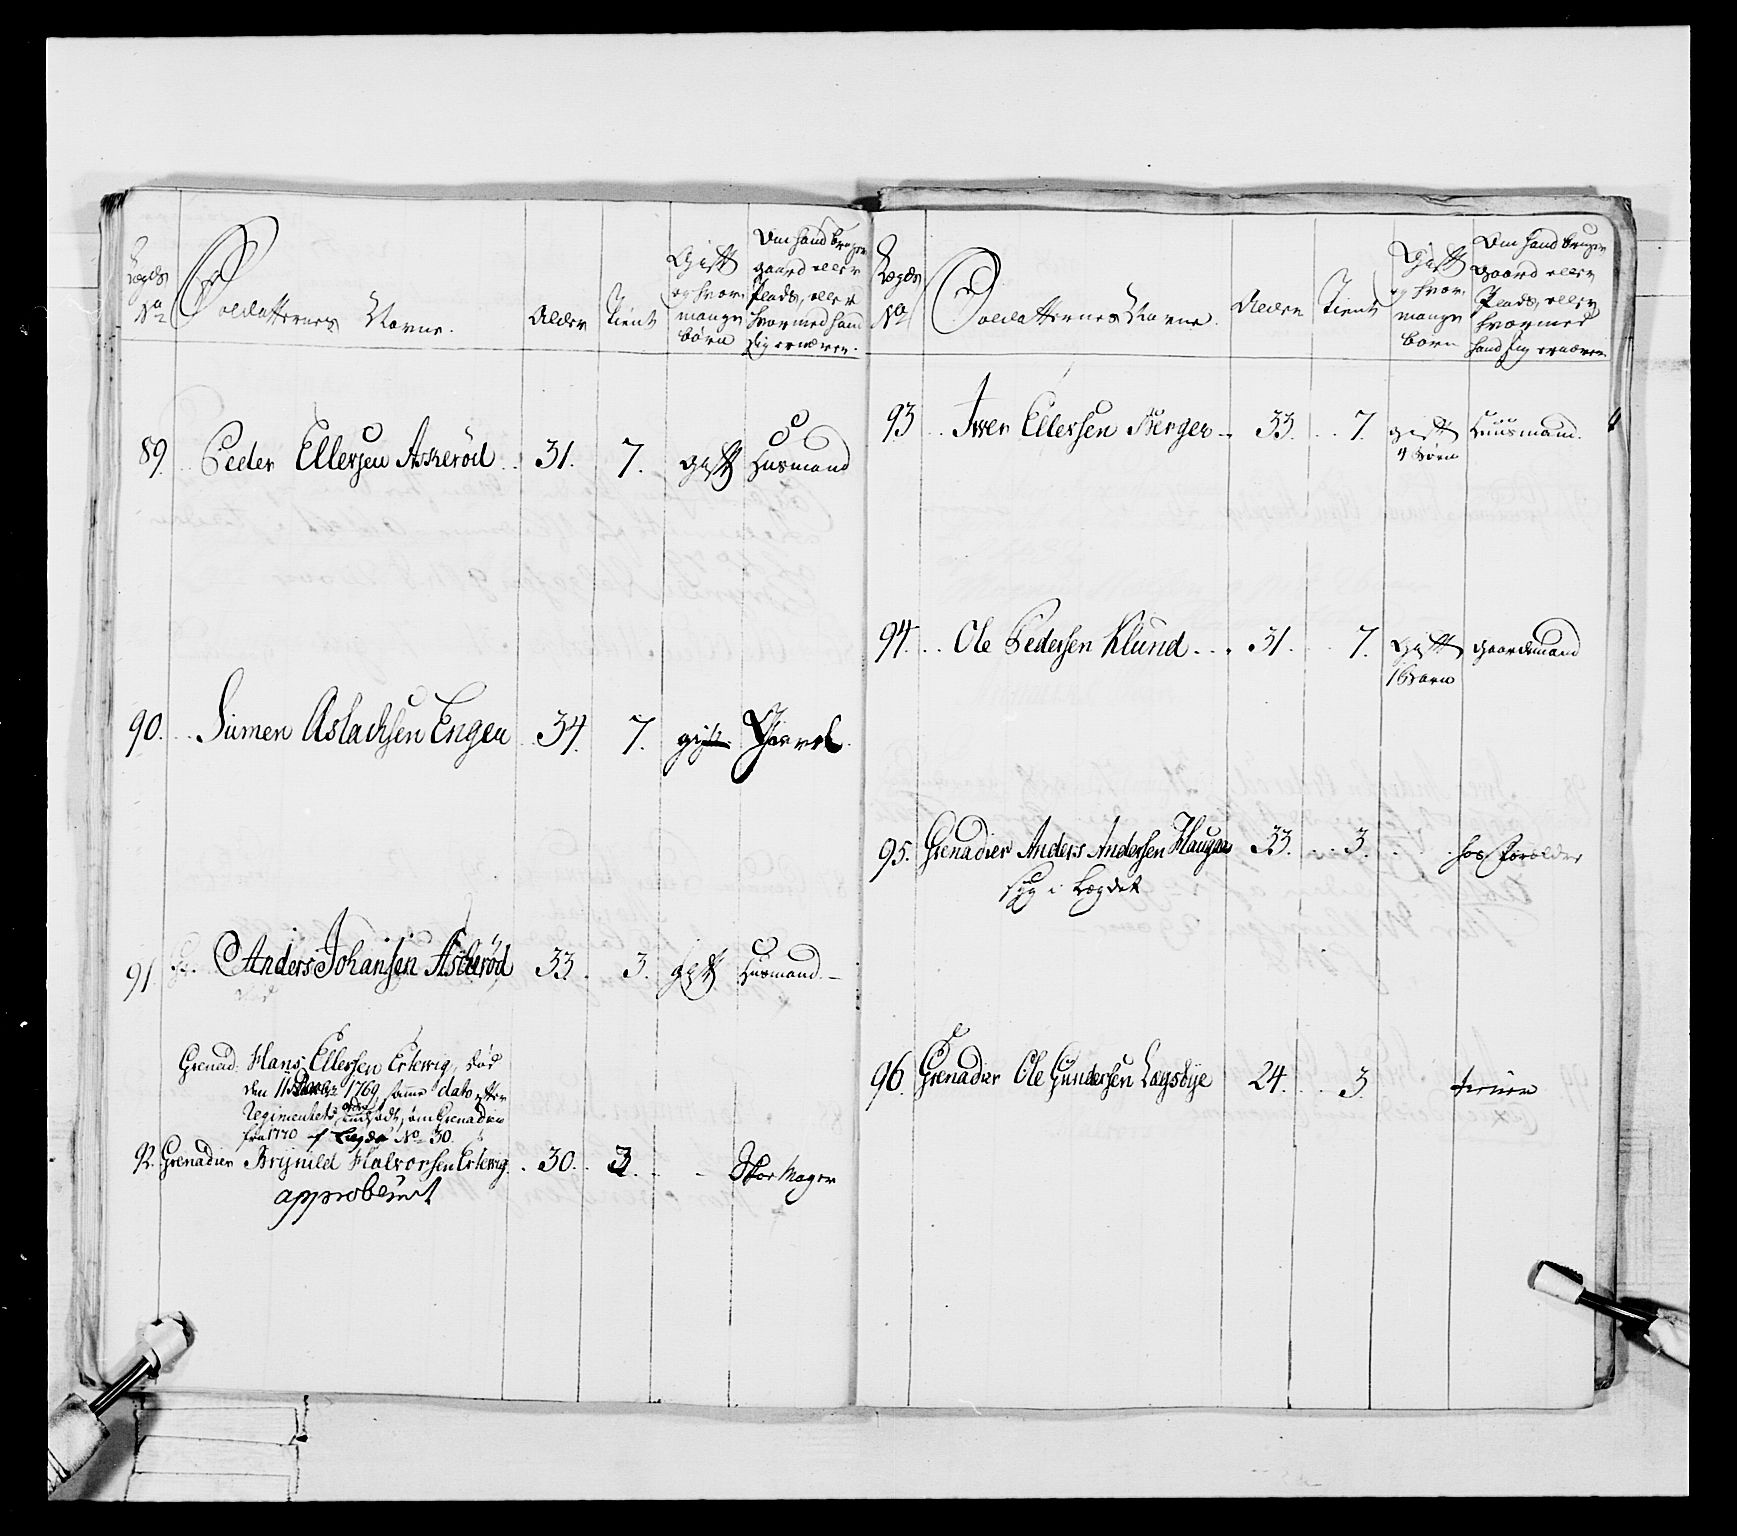 Lægds No
Soldatternes Navne.
Alder
Tient
Gift og hvor mange børn
Om hand bruger gaard eller Plads, eller hvormed hand sig ernærer.
89. Peder Ellersen Askerød 31. 7. gift Husmand
90. Simen Aslachsen Engen 34. 7. gift
91. Anders Johansen Askerød 33. 3. gift Husmand
Grenad: Hans Ellersen Erkevig, død
den 11 1769, samme dato efter
Regimentets ordre indsadt, som Grenadier
fra 1770 af Lægdet No 30.
92. Grenadier Brynild Halvorsen Erkevig 30. 3. Skomager
approberet
Lægds No
Soldatternes Navne.
Alder
Tient
Gift og hvor mange børn
Om hand bruger gaard eller Plads, eller hvormed hand sig ernærer.
93 Iver Ellersen Berger 33. 7. gift Huusmand.
4 børn
94. Ole Pedersen Klund 31. 7. Gift gaardmand
1 Barn
95. Grenadier Anders Andersen Haugen 33. 3. hos Forældre
syg i Lægdet
96. Grenadier Ole Gundersen Lagsbye 24. 3. tiener